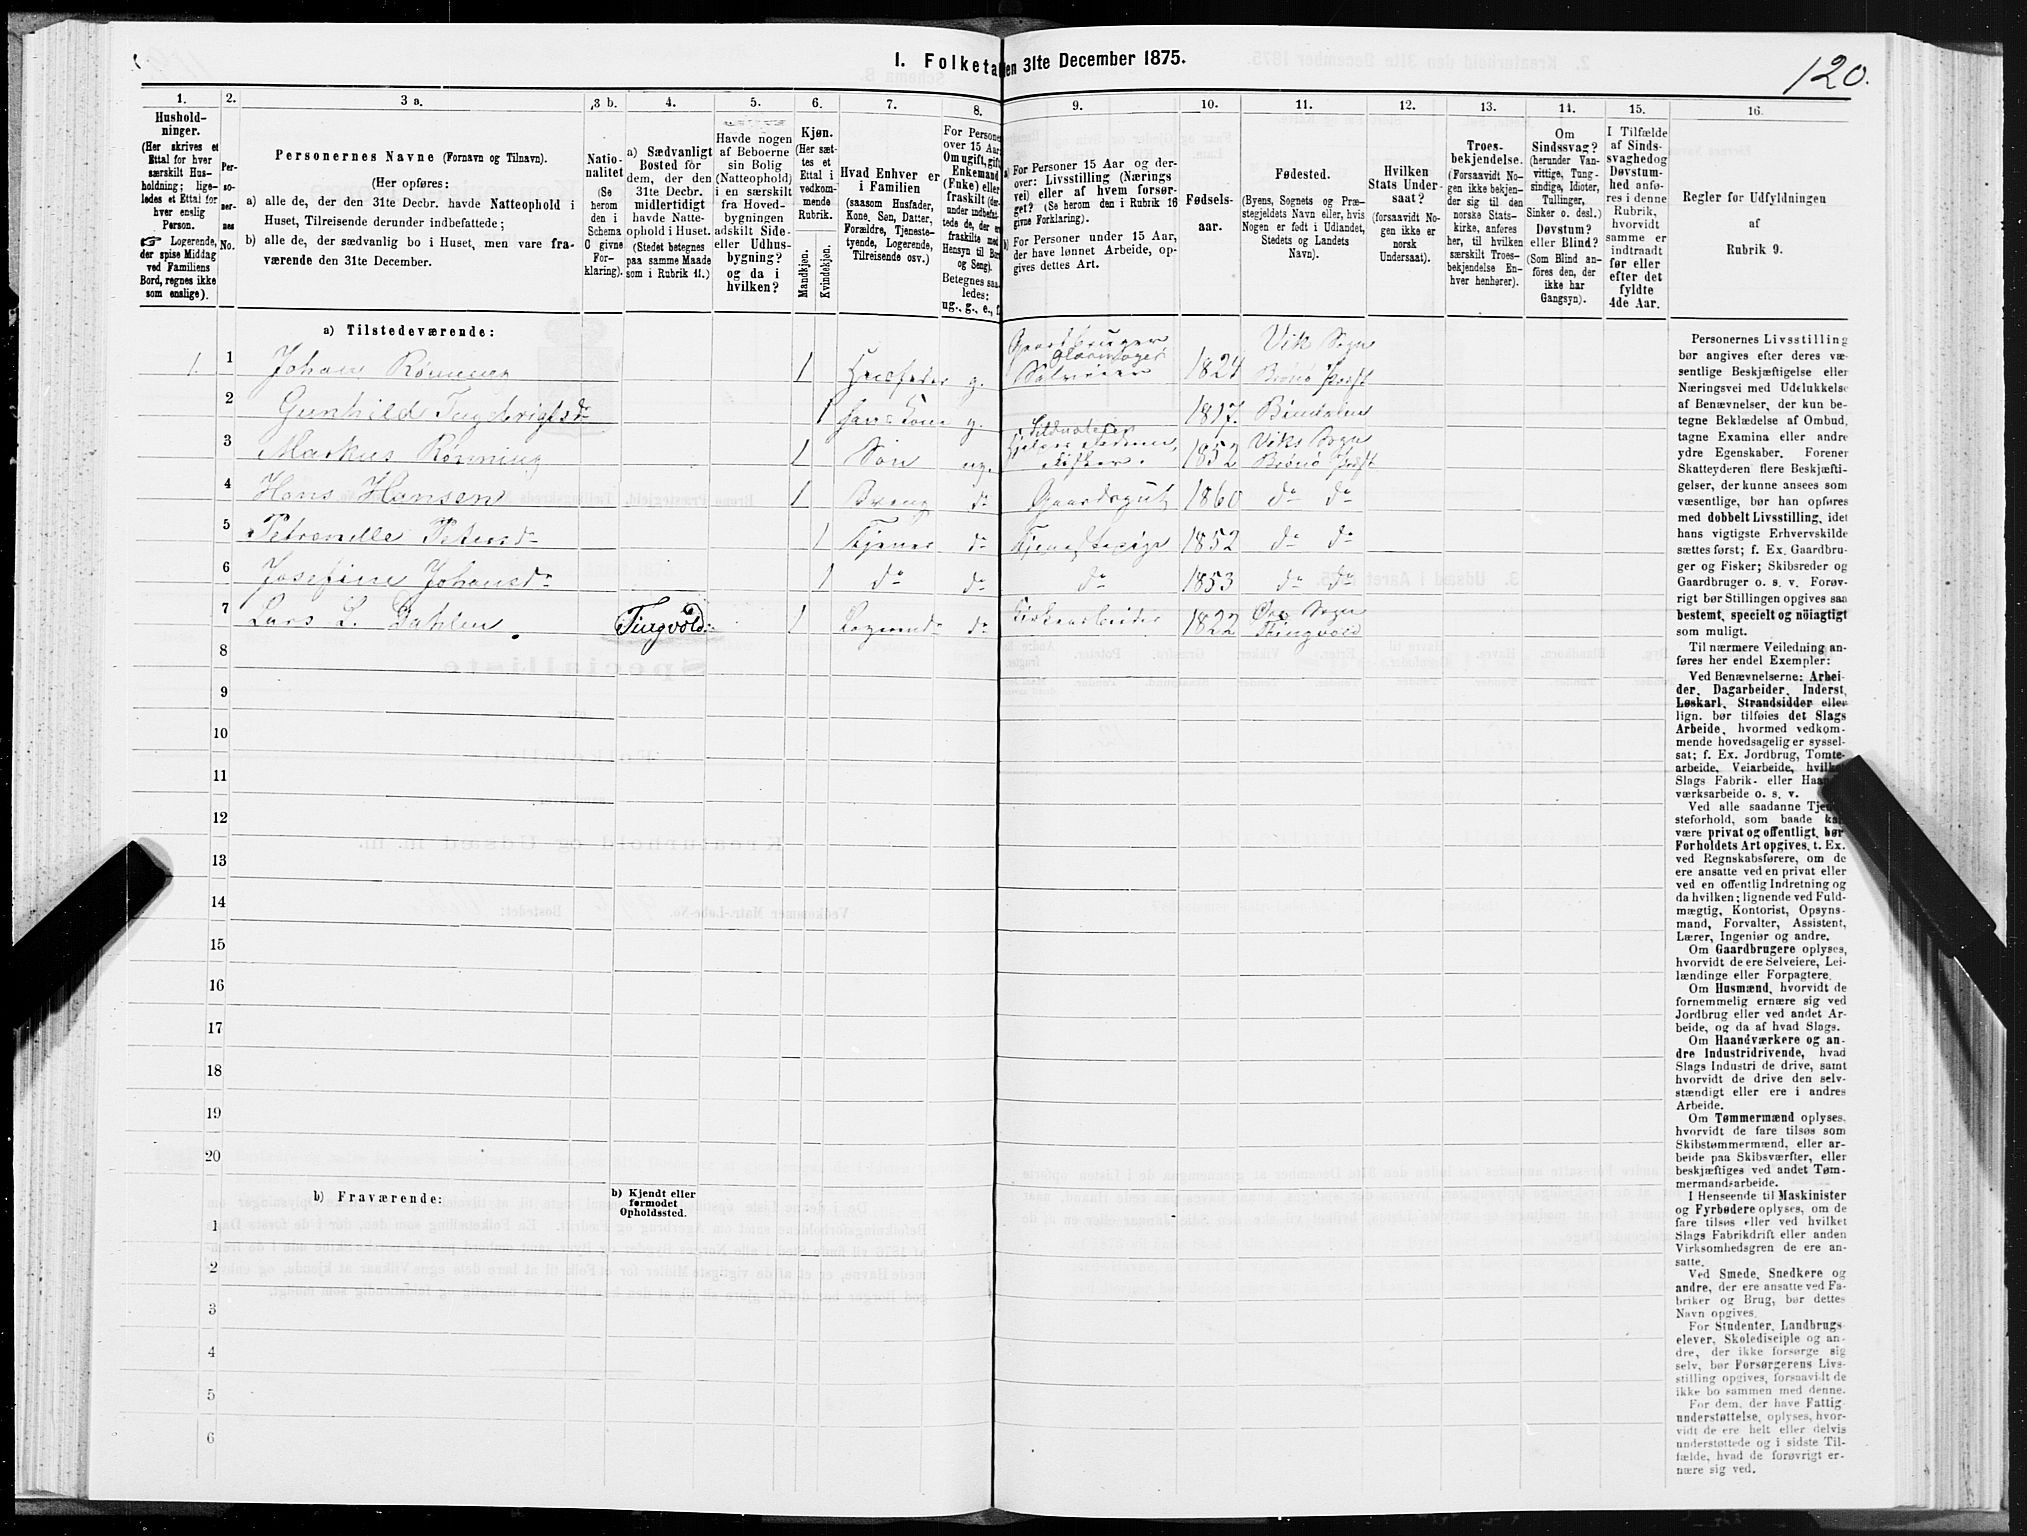 1. Folketa en 31te December 1875.
120.
1.
Hushold-
ninger.
(Her skrives et
Ettal for hver
særskilt Hus-
holdning; lige-
ledes et Ettal for
hver enslig
Person.
☞ Logerende,
der spise Middag
ved Familiens
Bord, regnes ikke
som enslige).
2.
Per-
so-
ner-
nes
No.
3 a.
Personernes Navne (Fornavn og Tilnavn).
(Her opføres:
a) alle de, der den 31te Decbr. havde Natteophold i
Huset, Tilreisende derunder indbefattede;
b) alle de, der sædvanlig bo i Huset, men vare fra-
værende den 31te December.
3 b.
Natio-
nalitet
(Se
herom
den i
Schema
C givne
For-
klaring).
4.
a) Sædvanligt
Bosted for
dem, der den
31te Decbr.
midlertidigt
havde Natte-
ophold i Huset.
(Stedet betegnes
paa samme Maade
som i Rubrik 11.)
5.
Havde nogen
af Beboerne
sin Bolig
(Natteophold)
i en særskilt
fra Hoved-
bygningen
adskilt Side-
eller Udhus-
bygning?
og da i
hvilken?
6.
Kjøn.
(Her sæt-
tes et
Ettal i
vedkom-
mende
Rubrik.
Mandkjøn.
Kvindekjøn.
7.
Hvad Enhver er
i Familien
(saasom Husfader,
Kone, Søn, Datter,
Forældre, Tjeneste-
tyende, Logerende,
Tilreisende osv.)
8.
For Persone
over 15 Aar:
Om ugift, gift,
Enkemand
(Enke) eller
fraskilt (der-
under indbefat-
tede de, der er
fraskilte med
Hensyn til Bor
og Seng).
Betegnes saa-
ledes:
ug., g., e., f.
9.
a) For Personer 15 Aar og der-
over: Livsstilling (Nærings
vei) eller af hvem forsør-
get? (Se herom den i Rubrik 16
givne Forklaring).
b) For Personer under 15 Aar,
der have lønnet Arbeide, op-
gives dettes Art.
10.
Fødsels-
aar.
11.
Fødested.
(Byens, Sognets og Præ-
stegjeldets Navn eller, hvis
Nogen er født i Udlandet,
Stedets og Landets
Navn).
12.
Hvilken
Stats Under-
saat?
(forsaavidt No-
gen ikke er
norsk
Undersaat).
13.
Troes-
bekjendelse.
(Forsaavidt No-
gen ikke bekjen-
der sig til den
norske Stats-
kirke, anføres
her, til hvilken
særskilt Troes-
bekjendelse En-
hver henhører).
14.
Om
Sindssvag?
(herunder Van-
vittige, Tung-
sindige, Idioter,
Tullinger,
Sinker o. desl.)
Døvstum?
eller Blind?
(Som Blind an-
føres den, der
ikke har
Gangsyn).
15.
I Tilfælde
af Sinds-
svaghedog
Døvstum-
hed anfø-
res i denne
Rubrik,
hvorvidt
samme er
indtraadt
før eller
efter det
fyldte
4de Aar.
16.
Regler for Udfyldningen
af
Rubrik 9.
a) Tilstedeværende:
1. 1 Johan Rønning 1 Husfader g. Gaardbruger Selveier 1824 Vik Sogn Brønø Præst
2 Gunhild Ingebrigtsd. 1 hans Kone g. 1817. Bindalen
3 Markus Rønning 1 Søn ug. Fisker. 1852 Viks Sogn Brønø Præst
4 Hans Hansen 1 do Gaardsgut 1860 do do
5 Petronille Petersd. 1 Tjener do Tjenestepige 1852 do do
6 Josefine Johansd. 1 do do do 1853 do do
7 Lars L. Dahlen. Tingvold. 1 Logerende do 1822 Sogn Thingvold
8
9
10
11
12
13
14
15
16
17
18
19
20
b) Fraværende:
b) Kjendt eller
formodet
Opholdssted.
1
2
3
4
5
6
Personernes Livsstilling
bør angives efter deres væ-
sentlige Beskjæftigelse eller
Næringsvei med Udelukkelse
af Benævnelser, der kun be-
tegne Beklædelse af Ombud,
tagne Examina eller andre
ydre Egenskaber. Forener
Skatteyderen flere Beskjæfti-
gelser, der kunne ansees som
væsentlige, bør han opføres
med dobbelt Livsstilling, idet
hans vigtigste Erhvervskilde
sættes først; f. Ex. Gaardbru-
ger og Fisker; Skibsreder og
Gaardbruger o. s. v. Forøv-
rigt bør Stillingen opgives saa
bestemt, specielt og nöiagtigt
som muligt.
Til nærmere Veiledning an-
føres her endel Exempler:
Ved Benævnelserne: Arbei-
der, Dagarbeider, Inderst,
Løskarl, Strandsidder eller
lign. bør tilføies det Slags
Arbeide, hvormed vedkom-
mende hovedsagelig er syssel-
sat; f. Ex. Jordbrug, Tomte-
arbeide, Veiarbeide, hvilket
Slags Fabrik- eller Haand-
værksarbeide o. s. v.
Ved alle saadanne Tjene-
steforhold, som baade kan
være privat og offentligt, bør
Forholdets Art opgives, t. Ex.
ved Regnskabsførere, om de
ere ansatte ved en privat eller
ved en offentlig Indretning og
da hvilken; lignende ved Fuld-
mægtig, Kontorist, Opsyns-
mand, Forvalter, Assistent,
Lærer, Ingeniør og andre.
Om Gaardbrugere oplyses,
hvorvidt de ere Selveiere, Lei-
lændinge eller Forpagtere.
Om Husmænd, hvorvidt de
fornemmelig ernære sig ved
Jordbrug eller ved andet Ar-
beide, og da af hvad Slags.
Om Haandværkere og an-
dre Industridrivende, hvad
Slags Industri de drive, samt
hvorvidt de drive den selv-
stændigt eller ere i andres
Arbeide.
Om Tømmermænd oplyses,
hvorvidt de fare tilsøs som
Skibstømmermænd, eller ar-
beide paa Skibsværfter, eller
beskjæftiges ved andet Tøm-
mermandsarbeide.
I Henseende til Maskinister
og Fyrbødere oplyses, om de
fare tilsøs eller ved hvilket
Slags Fabrikdrift eller anden
Virksomhedsgren de ere an-
satte.
Ved Smede, Snedkere og
andre, der ere ansatte ved Fa-
briker og Brug, bør dettes
Navn opgives.
For Studenter, Landbrugs-
elever, Skoledisciple og an-
dre, der ikke forsørge sig
selv, bør Forsørgerens Livs-
stilling opgives, forsaavidt de
ikke bo sammen med denne.
For dem, der have Fattig-
understøttelse, oplyses, hvor-
vidt de ere helt eller delvis
understøttede og i sidste Til-
fælde, hvad de forøvrigt er-
nære sig ved.